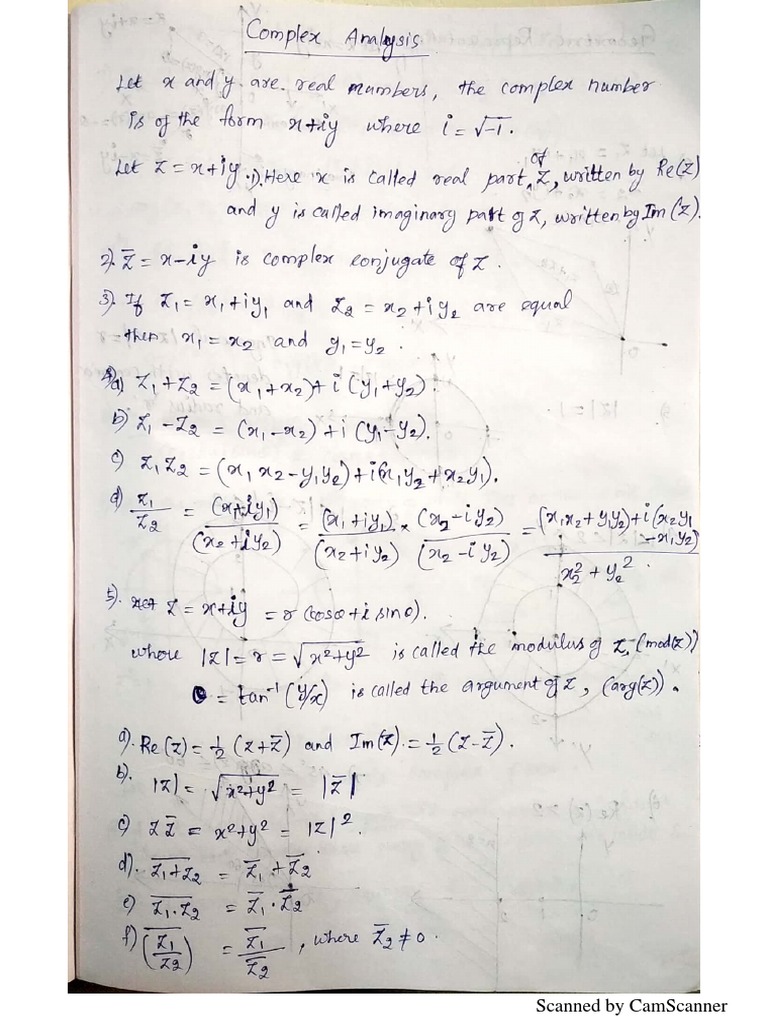 Complex Analysis
Let x and y are real numbers, the complex number
is of the form x+iy where i = √-1.
Let z = x+iy. 1). Here x is called real part of z, written by Re(z)
and y is called imaginary part of z, written by Im(z).
2). z̄ = x-iy is complex conjugate of z.
3). If z₁ = x₁+iy₁ and z₂ = x₂+iy₂ are equal
then x₁ = x₂ and y₁ = y₂.
4) a) z₁+z₂ = (x₁+x₂)+i(y₁+y₂).
b) z₁-z₂ = (x₁-x₂)+i(y₁-y₂).
c) z₁z₂ = (x₁x₂-y₁y₂)+i(x₁y₂+x₂y₁).
d) z₁/z₂ = (x+iy₁)/(x₂+iy₂) = (x₁+iy₁)/(x₂+iy₂) × (x₂-iy₂)/(x₂-iy₂) = (x₁x₂+y₁y₂)+i(x₂y₁-x₁y₂)/x₂²+y₂².
5). Let z = x+iy = r(cosθ+i sinθ).
where |z| = r = √x²+y² is called the modulus of z, (mod(z))
θ = tan⁻¹(y/x) is called the argument of z, (arg(z)).
a). Re(z) = 1/2 (z+z̄) and Im(z) = 1/2 (z-z̄).
b). |z| = √x²+y² = |z̄|
c) zz̄ = x²+y² = |z|².
d). \overline{z₁+z₂} = z̄₁+z̄₂
e) \overline{z₁.z₂} = z̄₁.z̄₂
f) \overline{(z₁/z₂)} = z̄₁/z̄₂, where z̄₂ ≠ 0.
Scanned by CamScanner